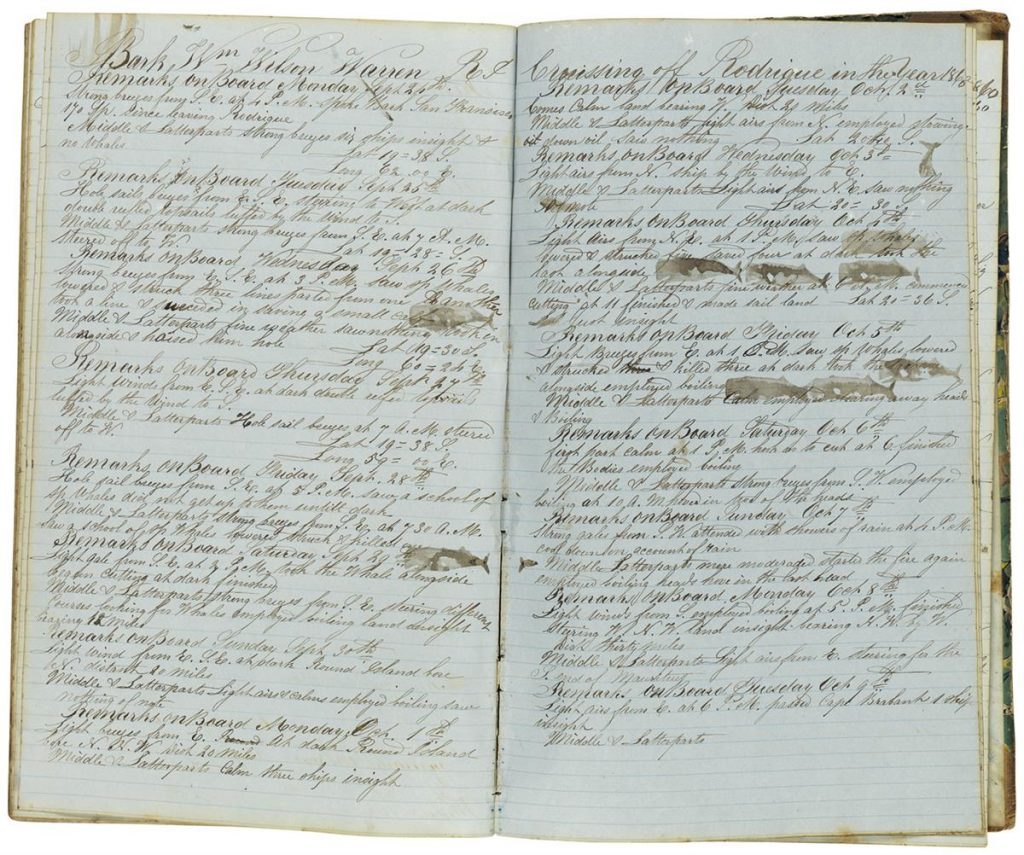 Bark Wm Wilson Warren R I
Remarks on Board Monday Sept 24th
Strong breezes from S. E. at 4 P. M. spoke Bark San Francisco
170 Sp. since leaving Rodrigue
Middle & Latterparts strong breezes six ships insight &
no Whales
Lat 19=38 S.
Long 62.00 E.
Remarks On Board Tuesday Sept 25th
Hole sail breezes from E. S. E. steering to West at dark
double reefed topsails luffed by the wind to S.
Middle & Latterparts strong breezes from S. E. at 7 A. M.
steered off to W. Lat 19=28 S.
Remarks on Board Wednesday Sept 26th
strong breezes from E. S. E. at 3 P. M. saw sp whales
lowered & struck three lines parted from one
took a line & in saving a small
Middle & Latterparts fine weather saw nothing
alongside & hoised him hole Lat 19=30 S.
Long 60=24 E.
Remarks On Board Thursday Sept 27th
Light Winds from E. S. E. at dark double reefed topsails
luffed by the Wind to S.
Middle & Latterparts Hole sail breezes at 7 A M. steered
off to W. Lat 19=38 S.
Long 59=00 E.
Remarks on Board Friday Sept. 28th
Hole sail breezes from S. E. at 5 P. M. saw a school of
sp Whales did not get up to them untill dark
Middle & Latterparts strong breezes from S. E. at 7 30 A. M.
saw a school of sp Whales lowered struck & killed
Remarks on Board Saturday Sept 29th
Light gale from S. E. at 2 P. M. took the Whale alongside
began Cutting at dark finished
Middle & Latterparts strong breezes from S. E. steering different
Courses looking for Whales employed boiling land insight
Miles
Remarks on Board Sunday Sept 30th
Light Wind from E. S. E. at dark Round Island bore
N. distant 20 miles
Middle & Latterparts Light airs & calms employed boiling saw
nothing of note
Remarks on Board Monday Oct. 1th
Light breezes from E. At dark Round Island
bore N. N. W. dist 20 miles
Middle & Latterparts Calm three ships insight
Cruissing off Rodrigue in the Year 1860
Remarks On Board Tuesday Oct 2th
Comes Calm land bearing W. dist 20 miles
Middle & Latterparts light airs from N. employed stowing
down oil Saw nothing Lat 20=12 S.
Remarks on Board Wednesday Oct 3th
Light airs from N. ship by the Wind to E.
Middle & Latterparts Light airs from N. E. saw nothing
of note Lat 20=30 S.
Remarks On Board Thursday Oct 4th
Light Airs from N. E. at 1 P. M. saw sp whales
lowered & strucked five and four at dark took the
last alongside
Middle & Latterparts fine weather at A. M. commenced
cutting at 11 finished & made sail land Lat 20=36 S.
Just insight
Remarks on Board Friday Oct 5th
Light Breezes from E. at 1 P. M. saw sp Whales lowered
& strucked & killed three at dark took the
alongside employed boiling
Middle & Latterparts Calm employed away heads
& Boiling
Remarks on Board Saturday Oct 6th
first part calm at 1 P. M. to cut at 6 finished
the Bodies employed boiling
Middle & Latterparts strong breezes from S. W. employed
boiling at 10 A. M. in two of the heads
Remarks on Board Sunday Oct 7th
Strong gales from S. W. attended with showers of rain at 4 P. M.
cool down on account of rain
Middle Latterparts more moderated started the fire again
employed boiling heads hove in the last head
Remarks on Board Monday Oct 8th
Light Winds from S. employed boiling at 5 P. M. finished
Steering W. N. W. land insight bearing N. W. by W.
dist thirty miles
Middle & Latterparts Light airs from E. steering for the
S. end of Mauritius
Remarks On Board Tuesday Oct 9th
Light airs from E. at 6 P. M. passed Cape Brabant 1 ship
insight
Middle & Latterparts